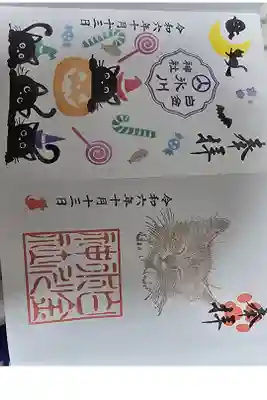 奉拝
白金
氷川
神社
令和六年十月十三日
奉拝
白金
氷川
神社
令和六年十月十三日